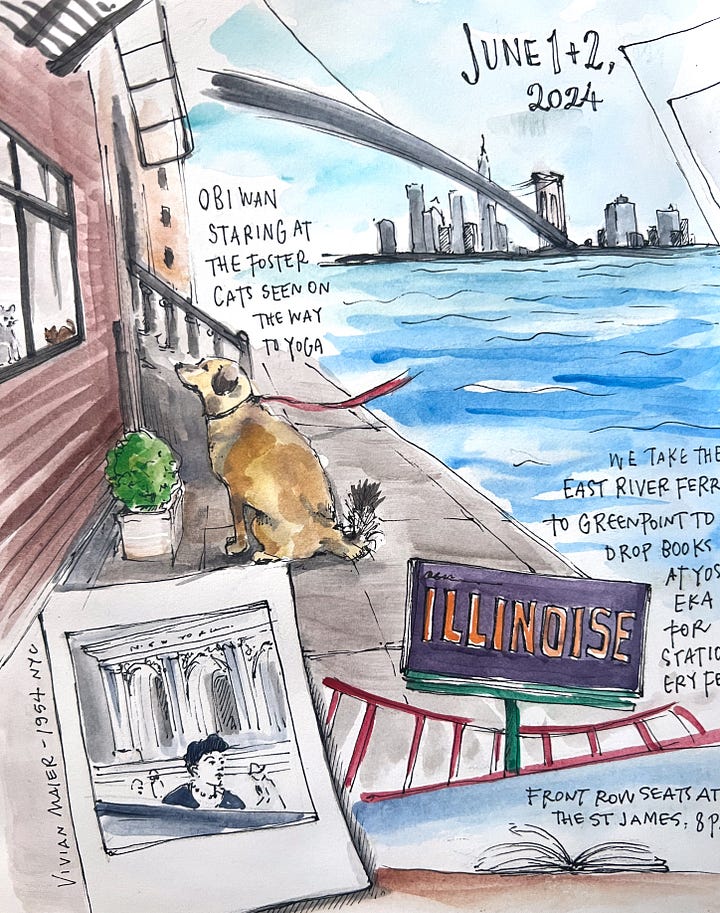 JUNE 1+2,
2024
OBI WAN
STARING AT
THE FOSTER
CATS SEEN ON
THE WAY
TO YOGA
WE TAKE THE
EAST RIVER FERR
TO GREENPOINT TO
DROP BOOKS
AT YOS
EKA
FOR
STATIO
ERY FE
ILLINOISE
FRONT ROW SEATS AT
THE ST JAMES, 8P
NEW YORK
VIVIAN MAIER - 1954 NYC